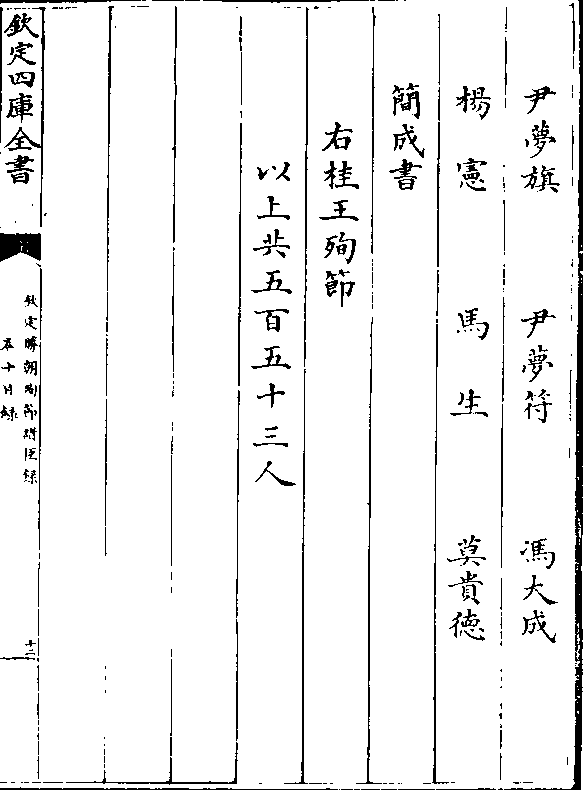 尹夢旗 尹夢符 馮大成
楊憲 馬生 莫貴德
簡成書
右桂王殉節
以上共五百五十三人
欽定四庫全書
欽定勝朝殉節諸臣錄
卷十目錄
十二